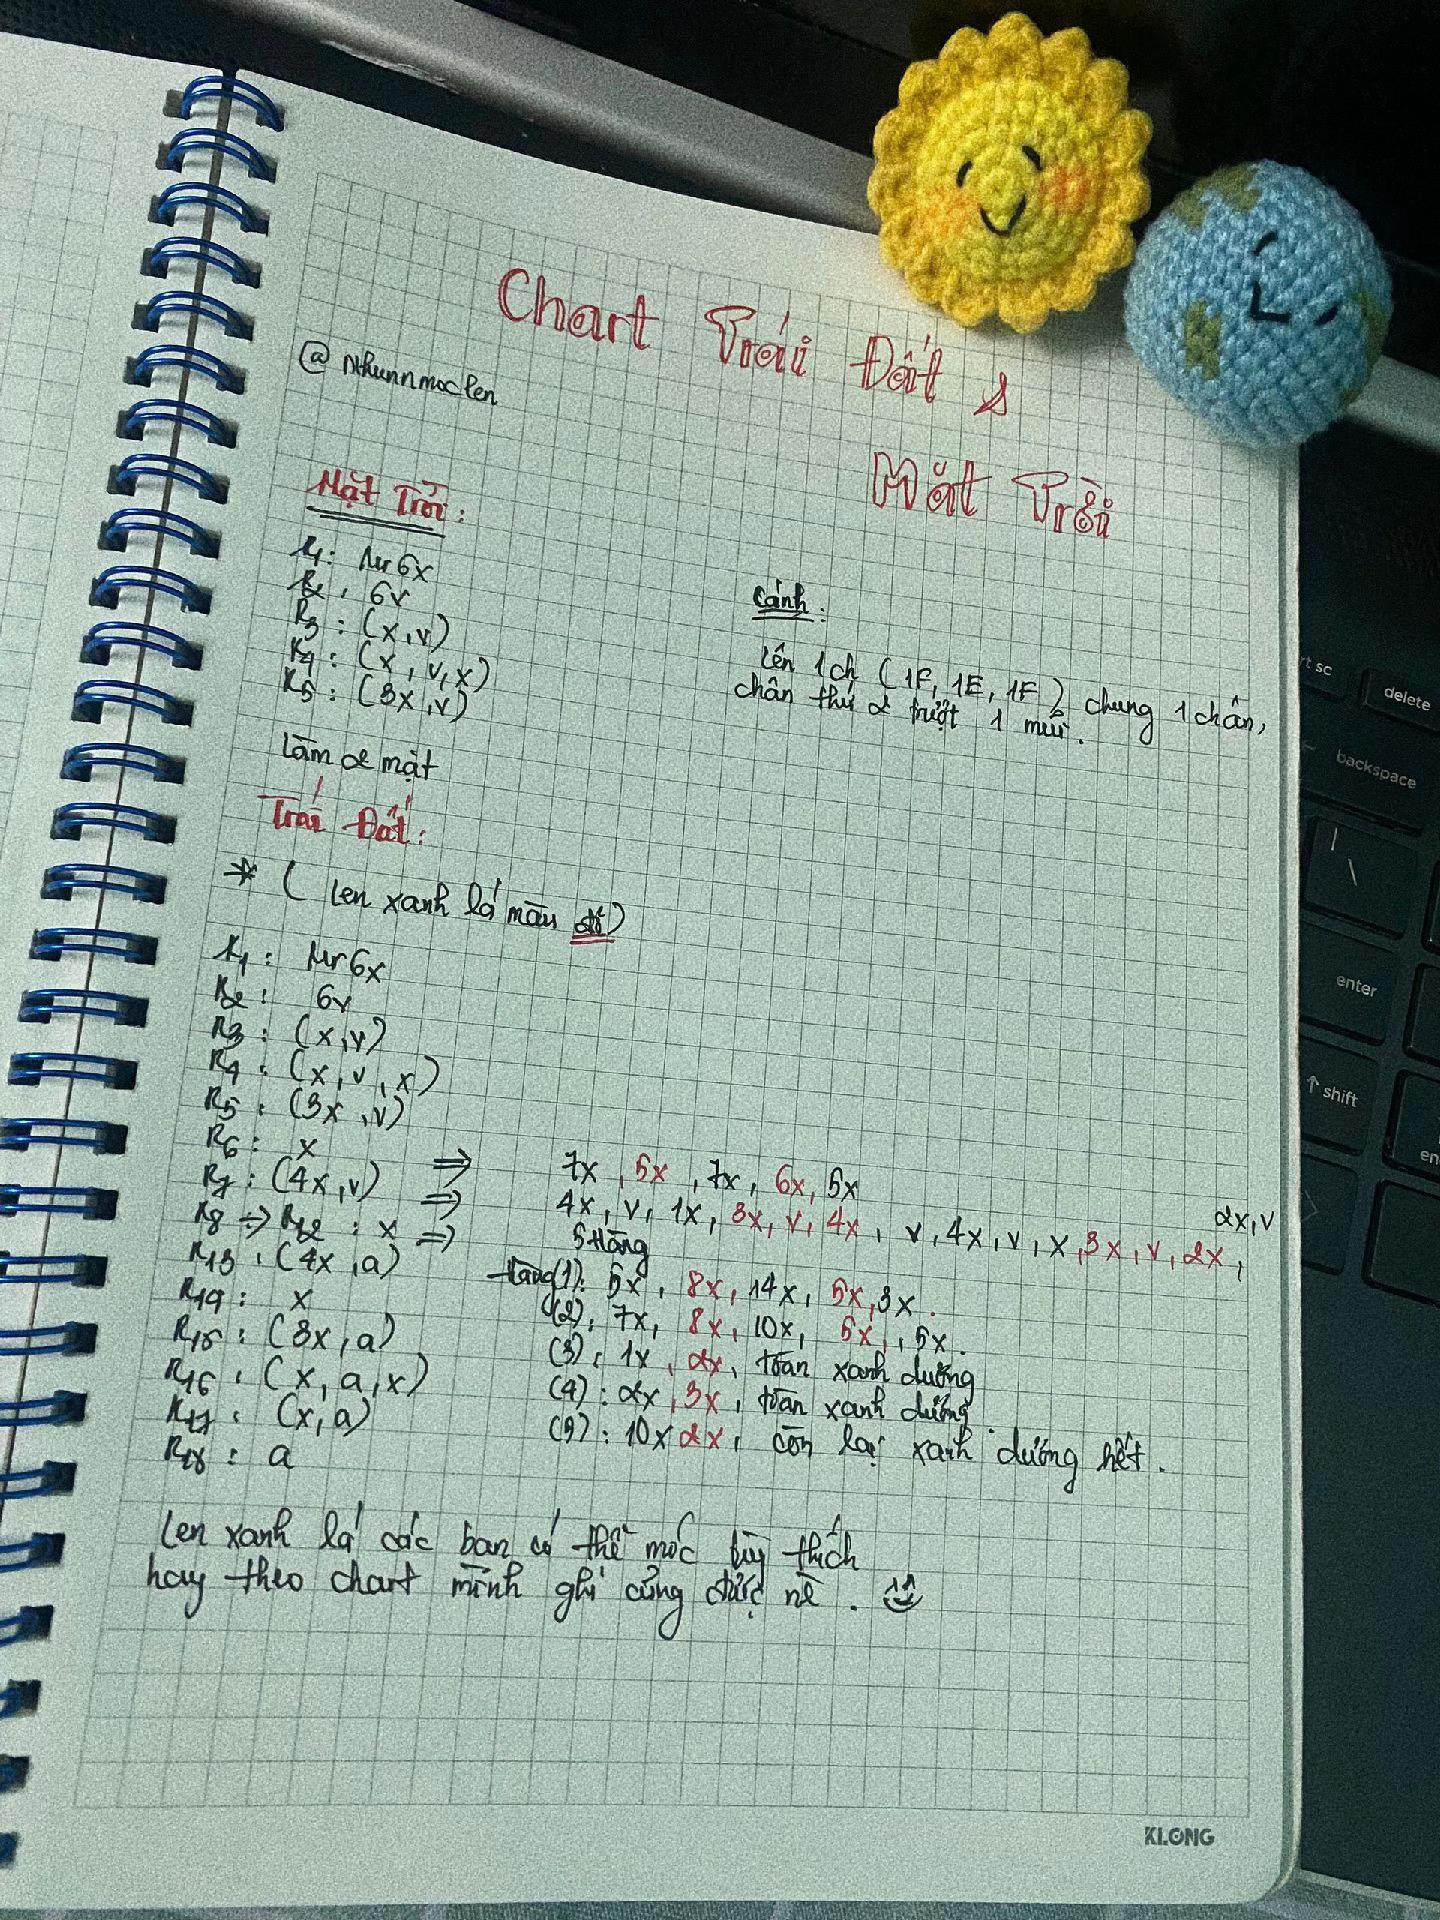 Chart Trái Đất &
Mặt Trời
@nhunnmoclen
Mặt Trời:
R1: Mr 6x
R2: 6v
R3: (x,v)
R4: (x,v,x)
R5: (3x,v)
Làm 2 mặt
Cánh:
Lên 1ch (1F, 1E, 1F) chung 1 chân,
chân thứ 2 trượt 1 mũi.
Trái Đất:
* (Len xanh lá màu đỏ)
R1: Mr 6x
R2: 6v
R3: (x,v)
R4: (x,v,x)
R5: (3x,v)
R6: x ⇒ 7x, 5x, 7x, 6x, 5x
R7: (4x,v) ⇒ 4x, v, 1x, 3x, v, 4x, v, 4x, v, x, 3x, v, 2x, 2x,v
R8 → R12: x ⇒ 5 hàng
hàng (1): 5x, 8x, 14x, 5x, 3x.
(2): 7x, 8x, 10x, 5x, 5x.
(3): 1x, 2x, toàn xanh dương
(4): 2x, 3x, toàn xanh dương
(5): 10x 2x, còn lại xanh dương hết.
R13: (4x,a)
R14: x
R15: (3x,a)
R16: (x,a,x)
R17: (x,a)
R18: a
Len xanh lá các bạn có thể móc tùy thích
hay theo chart mình ghi cũng được nè.
KLONG
rt sc
delete
backspace
| \
enter
↑ shift
en